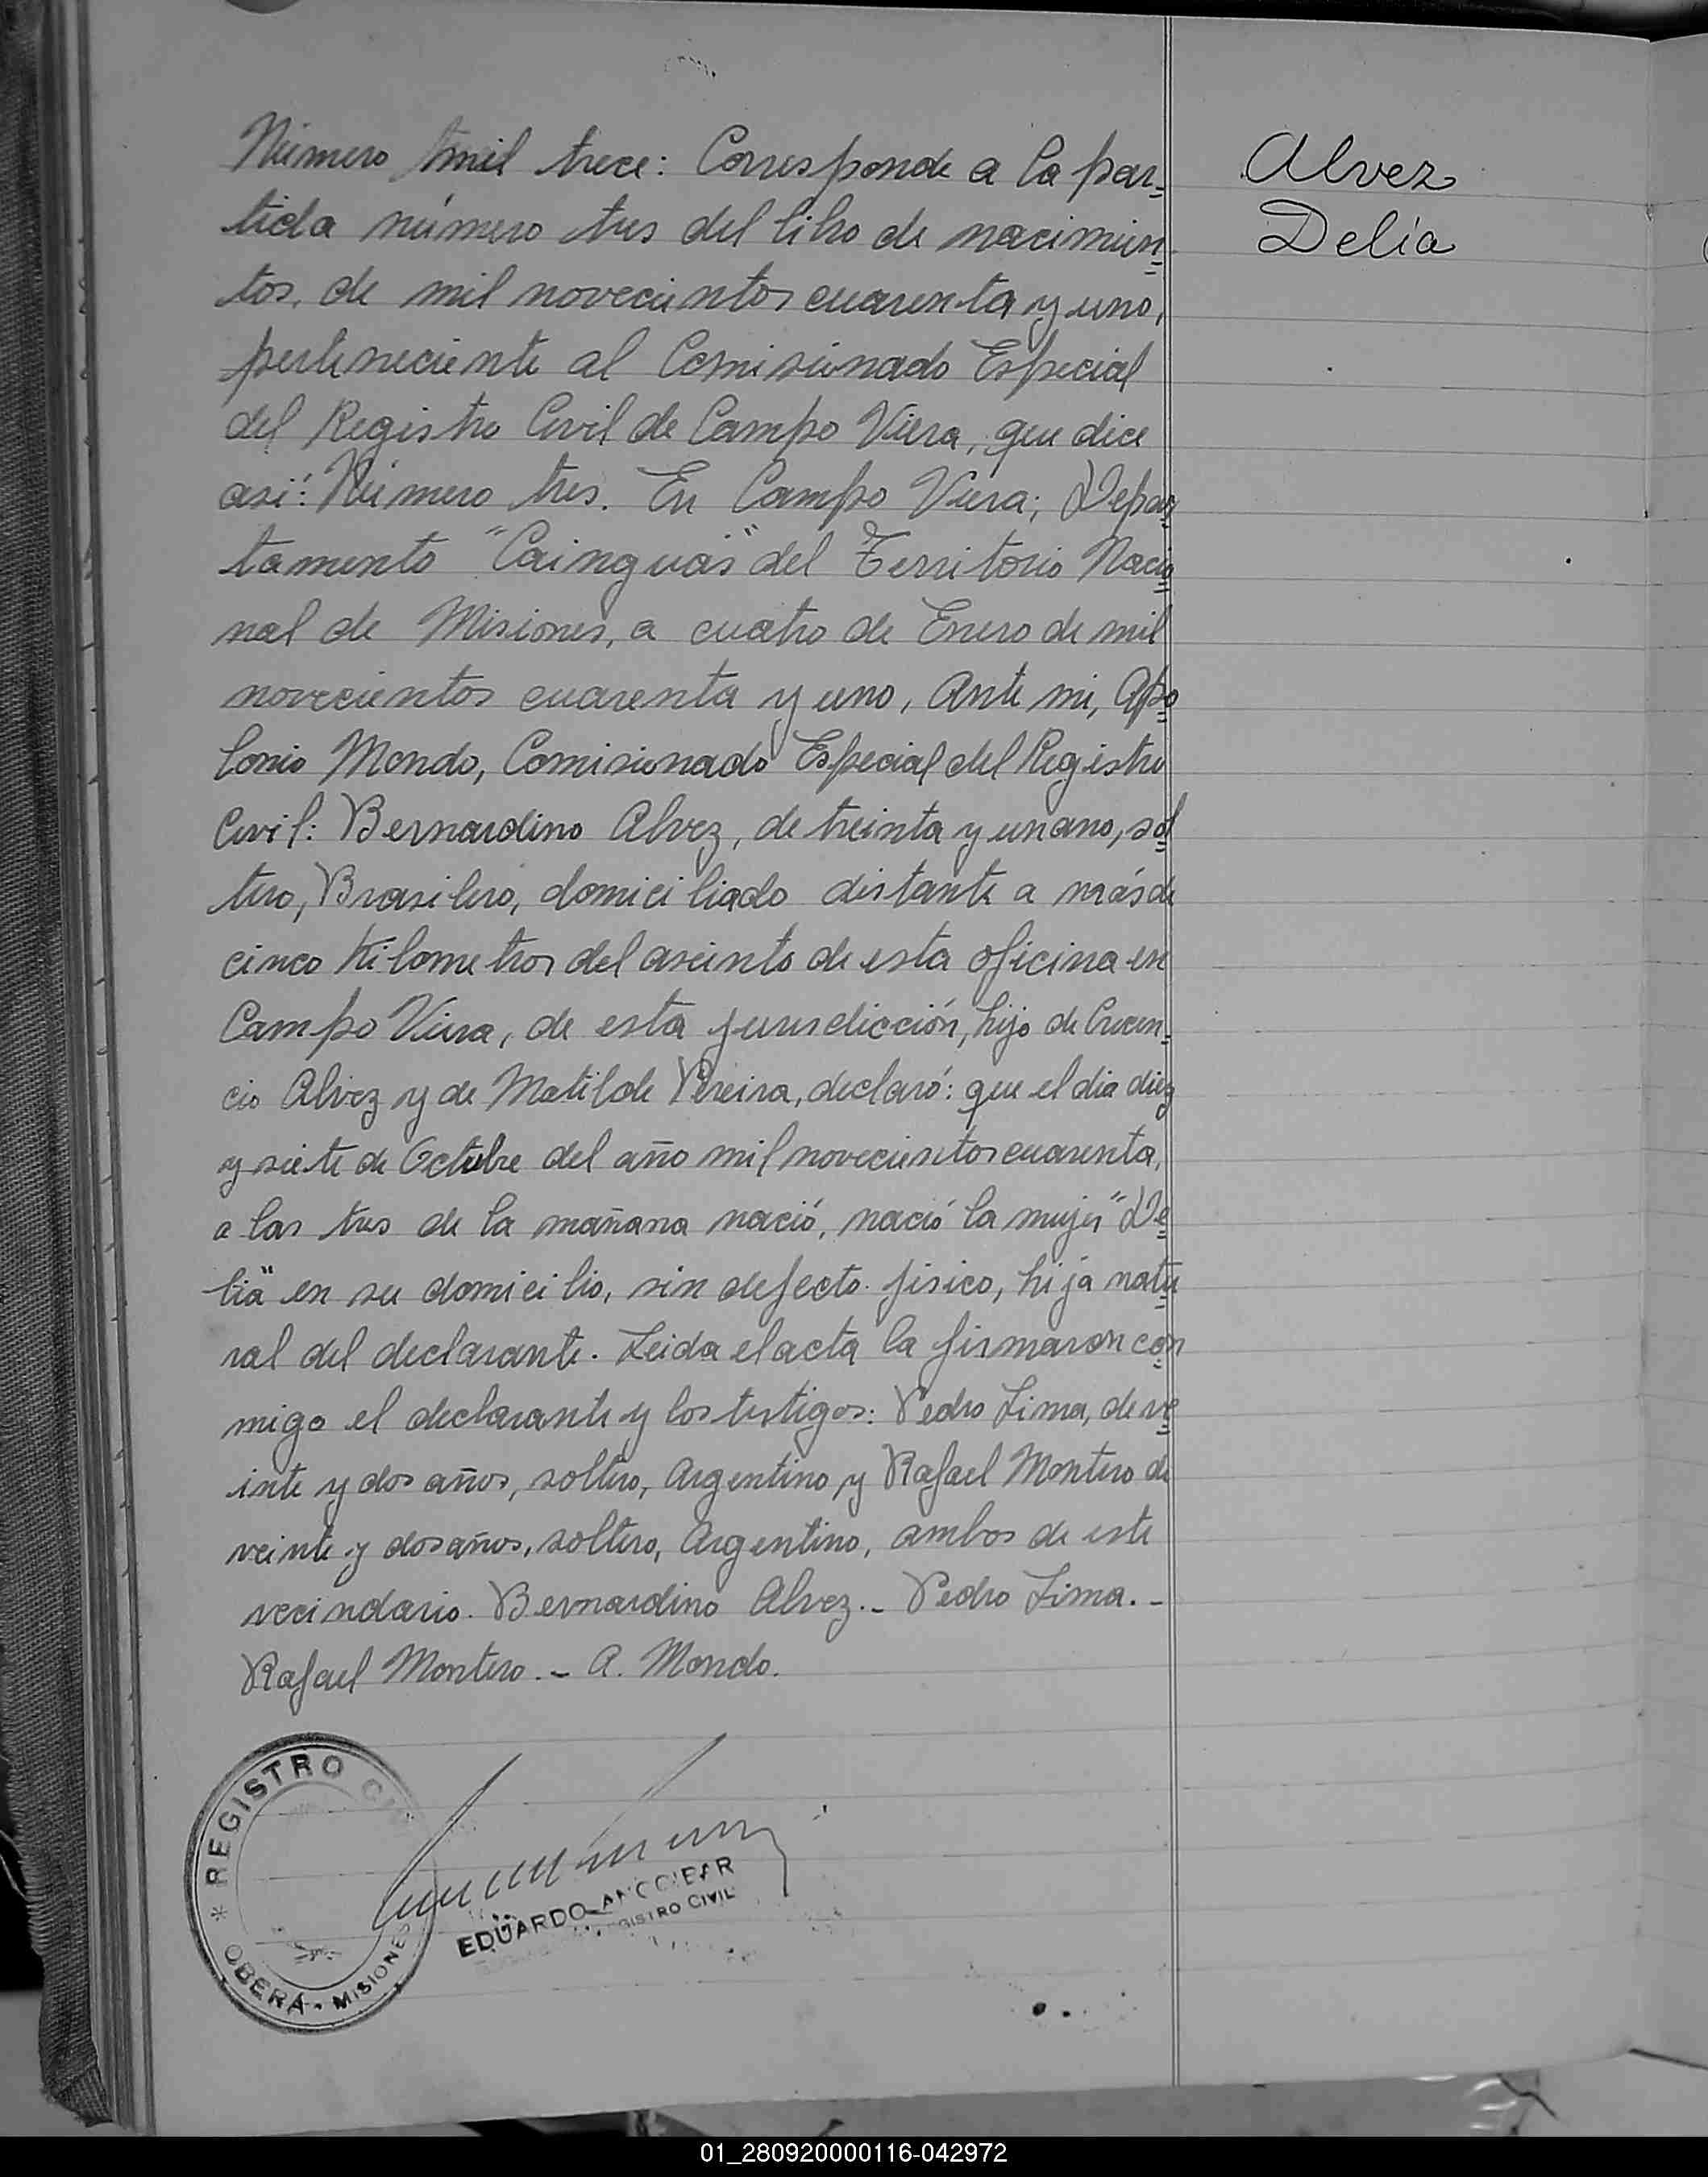 Número mil trece: Corresponde a la par-
tida número tres del libro de nacimien-
tos, de mil novecientos cuarenta y uno,
perteneciente al Comisionado Especial
del Registro Civil de Campo Viera, que dice
asi: Número tres. En Campo Viera; Depar
tamento "Cainguás" del Territorio Nacio
nal de Misiones, a cuatro de Enero de mil
novecientos cuarenta y uno, Ante mi, Apo
lonio Mondo, Comisionado Especial del Registro
Civil: Bernardino Alvez, de treinta y un ano, sol
tero, Brasilero, domiciliado distante a más de
cinco Kilometros del aseinto de esta oficina en
Campo Viera, de esta jurisdicción, hijo de Crecen-
cio Alvez y de Matilde Pereira, declaró: que el dia diez
y siete de Octubre del año mil novecientos cuarenta,
a las tres de la mañana nació, nació la mujer "De
lia" en su domicilio, sin defecto fisico, hija natu
ral del declarante. Leida el acta la firmaron con
migo el declarante y los testigos: Pedro Lima, de ve
inte y dos años, soltero, Argentino y Rafael Montero de
veinte y dos años, soltero, Argentino, ambos de este
vecindario. Bernardino Alvez.- Pedro Lima.-
Rafael Montero.- A. Mondo.
Alvez
Delia
* REGISTRO
OBERÁ - MISIONES
EDUARDO
REGISTRO CIVIL
01_280920000116-042972